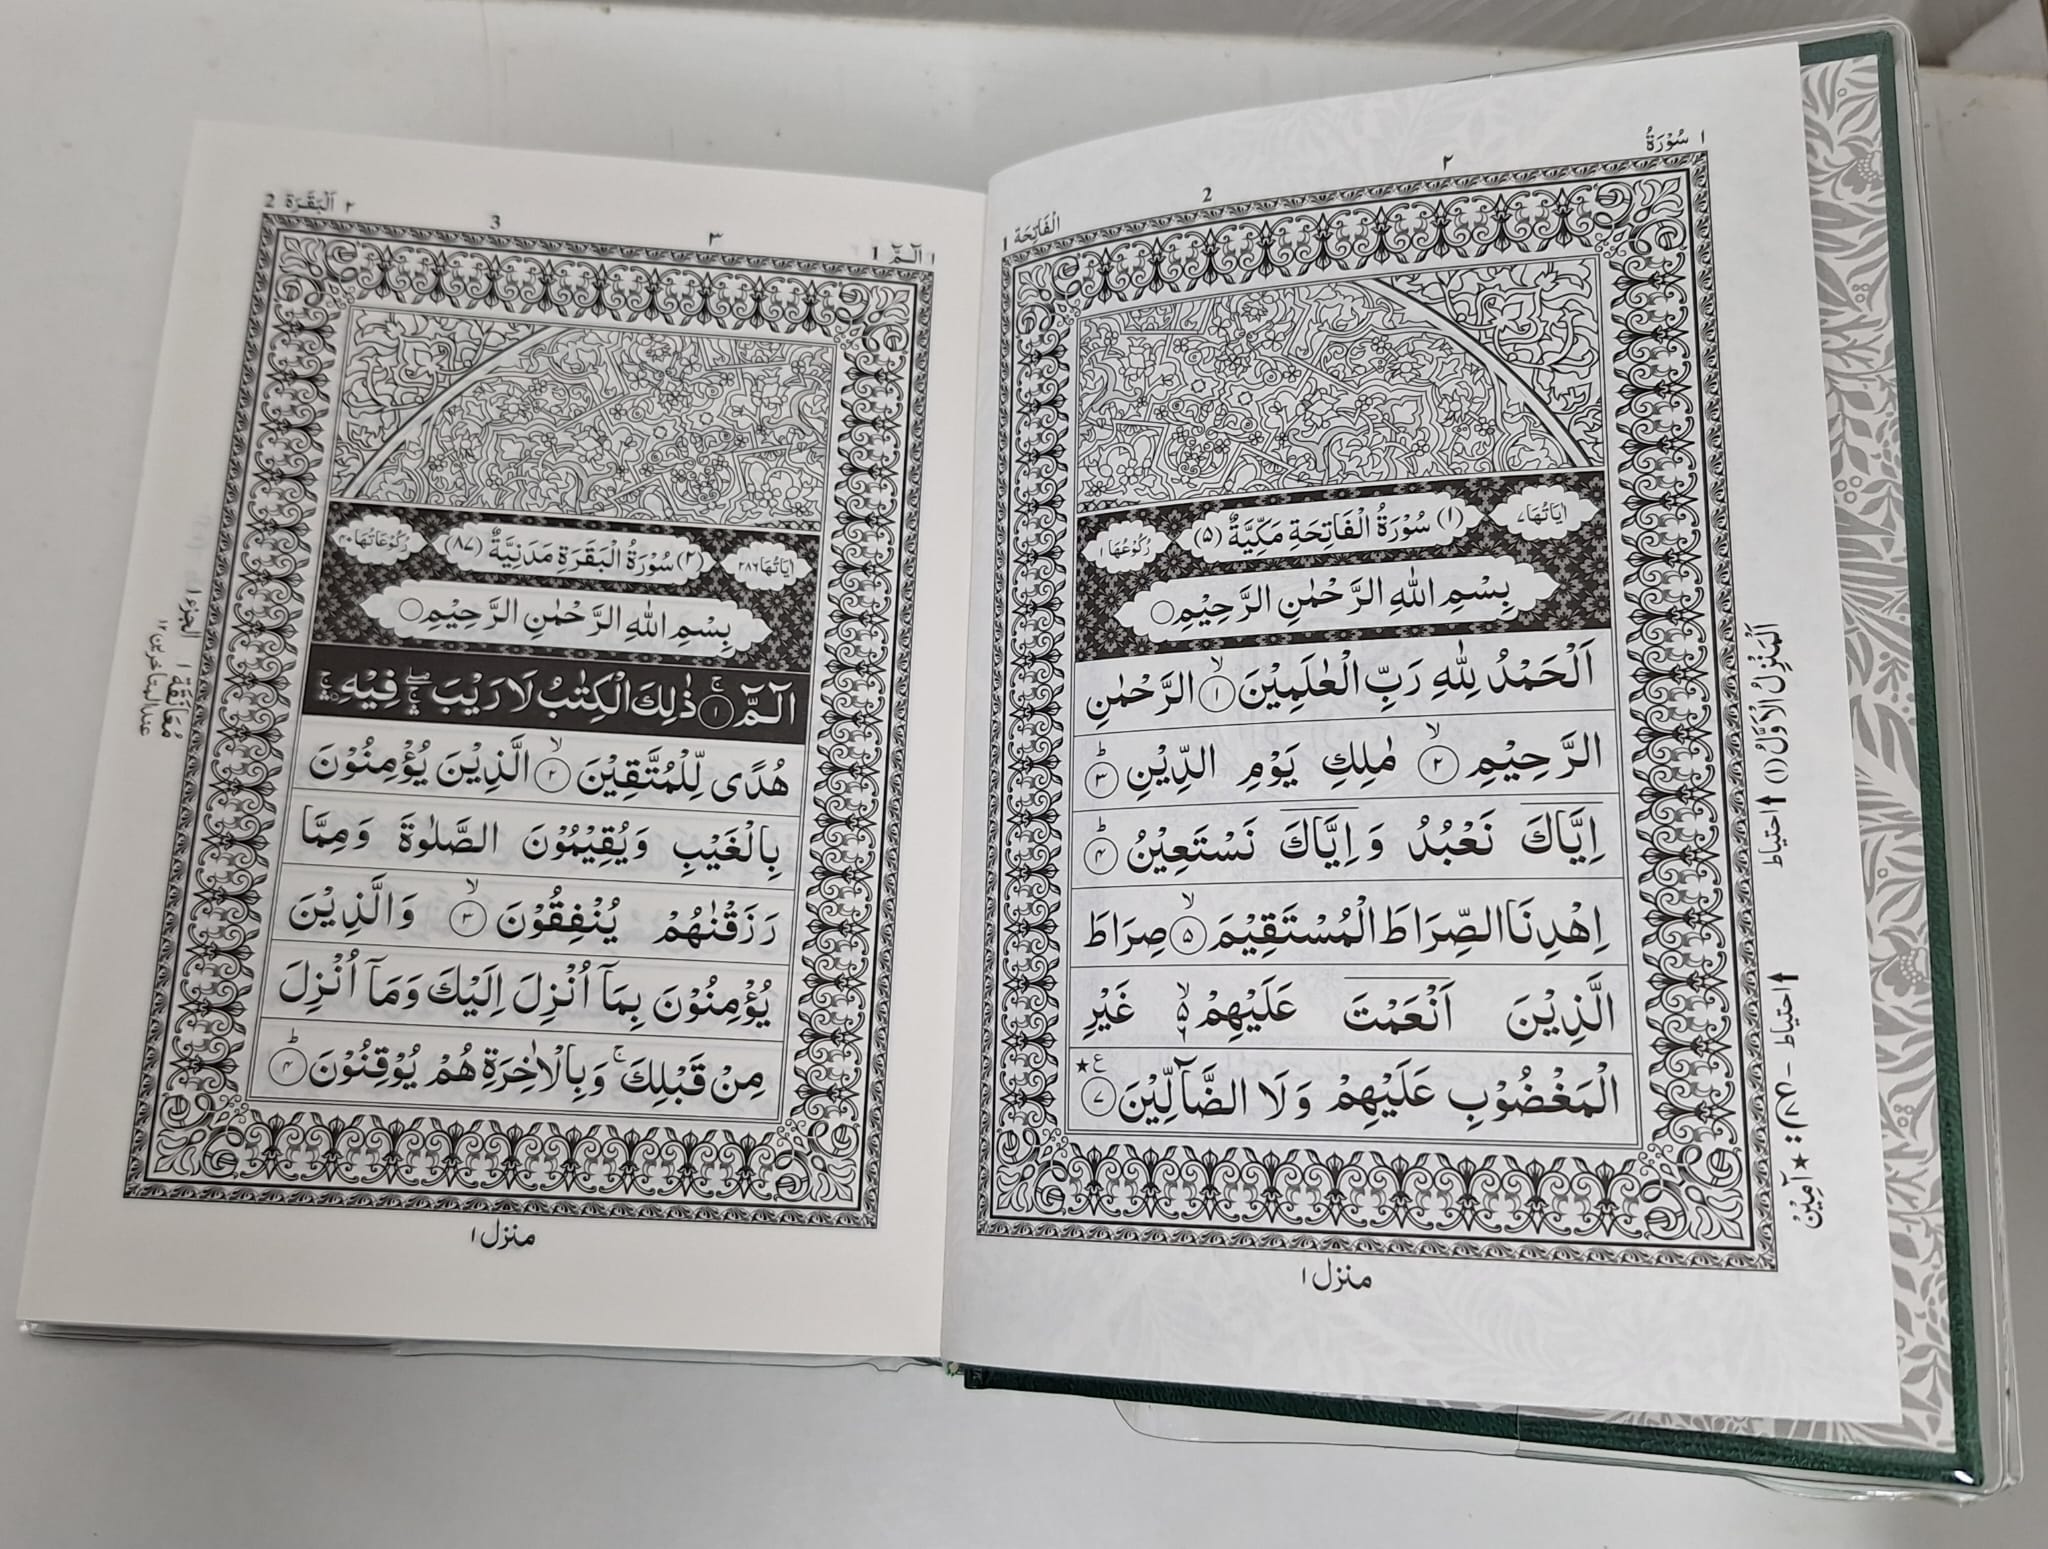 ١ سُوْرَةُ
٢
2
الْفَاتِحَة 1
اٰيَاتُهَا ٧
(١) سُوْرَةُ الْفَاتِحَةِ مَكِّيَّةٌ (٥)
رُكُوْعُهَا ١
بِسْمِ اللّٰهِ الرَّحْمٰنِ الرَّحِيْمِ
اَلْحَمْدُ لِلّٰهِ رَبِّ الْعٰلَمِيْنَ ۙ﴿١﴾ الرَّحْمٰنِ
الرَّحِيْمِ ۙ﴿٢﴾ مٰلِكِ يَوْمِ الدِّيْنِ ؕ﴿٣﴾
اِيَّاكَ نَعْبُدُ وَ اِيَّاكَ نَسْتَعِيْنُ ؕ﴿٤﴾
اِهْدِنَا الصِّرَاطَ الْمُسْتَقِيْمَ ۙ﴿٥﴾ صِرَاطَ
الَّذِيْنَ اَنْعَمْتَ عَلَيْهِمْ ۙ۬ ٦ غَيْرِ
الْمَغْضُوْبِ عَلَيْهِمْ وَلَا الضَّآلِّيْنَ ﴿٧﴾ ع ★
منزل ١
اَلْمَنْزِلُ الْاَوَّلُ (١)
احتیاط
احتیاط
★ اٰمِيْنْ
١ الٓمّٓ 1
٣
3
٢ اَلْبَقَرَة 2
اٰيَاتُهَا ٢٨٦
(٢) سُوْرَةُ الْبَقَرَةِ مَدَنِيَّةٌ (٨٧)
رُكُوْعَاتُهَا ٤٠
بِسْمِ اللّٰهِ الرَّحْمٰنِ الرَّحِيْمِ
الٓمّٓ ۚ﴿١﴾ ذٰلِكَ الْكِتٰبُ لَا رَيْبَ ۛۖ فِيْهِ ۛ
هُدًى لِّلْمُتَّقِيْنَ ۙ﴿٢﴾ الَّذِيْنَ يُؤْمِنُوْنَ
بِالْغَيْبِ وَيُقِيْمُوْنَ الصَّلٰوةَ وَمِمَّا
رَزَقْنٰهُمْ يُنْفِقُوْنَ ۙ﴿٣﴾ وَالَّذِيْنَ
يُؤْمِنُوْنَ بِمَآ اُنْزِلَ اِلَيْكَ وَمَآ اُنْزِلَ
مِنْ قَبْلِكَ ۚ وَبِالْاٰخِرَةِ هُمْ يُوْقِنُوْنَ ؕ﴿٤﴾
منزل ١
الجزء ١
مُعَانَقَة ١
عند المتاخرين ١٢